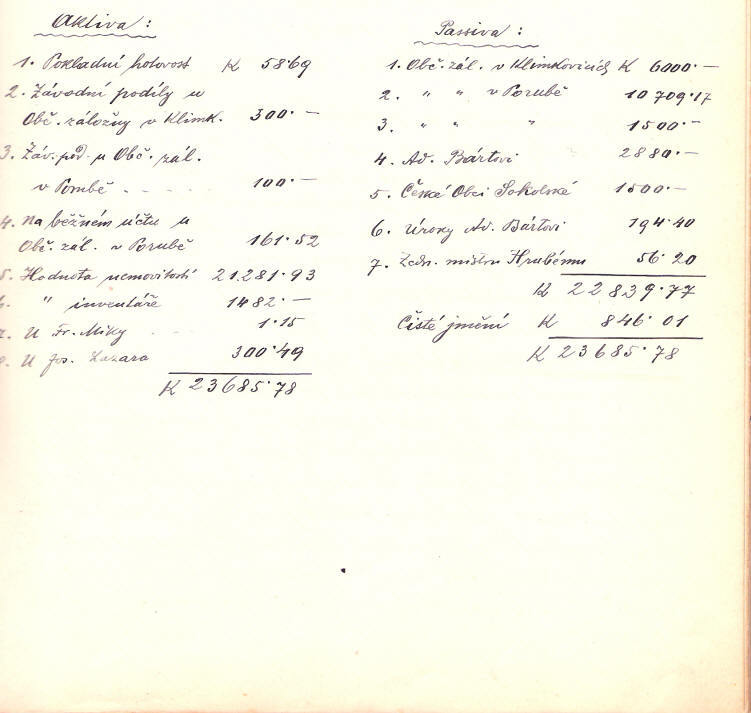 Aktiva :
1. Pokladní hotovost K 58·69
2. Závodní podíly u
Obč. záložny v Klimk. 300·—
3. Záv. pod. u Obč. zál.
v Porubě - - - - 100·—
4. Na běžném účtu u
Obč. zál. v Porubě 161·52
5. Hodnota nemovitostí 21.281·93
6. " inventáře 1482·—
7. U Fr. Miky - - - 1·15
8. U Jos. Lazara 300·49
K 23685·78
Passiva :
1. Obč. zál. v Klimkovicích K 6000·—
2. " " v Porubě 10709·17
3. " " " 1500·—
4. Ad. Bártovi 2880·—
5. České Obci Sokolské 1500·—
6. Úroky Ad. Bártovi 194·40
7. Zedn. mistru Hrubému 56·20
K 22839·77
Čisté jmění K 846·01
K 23685·78